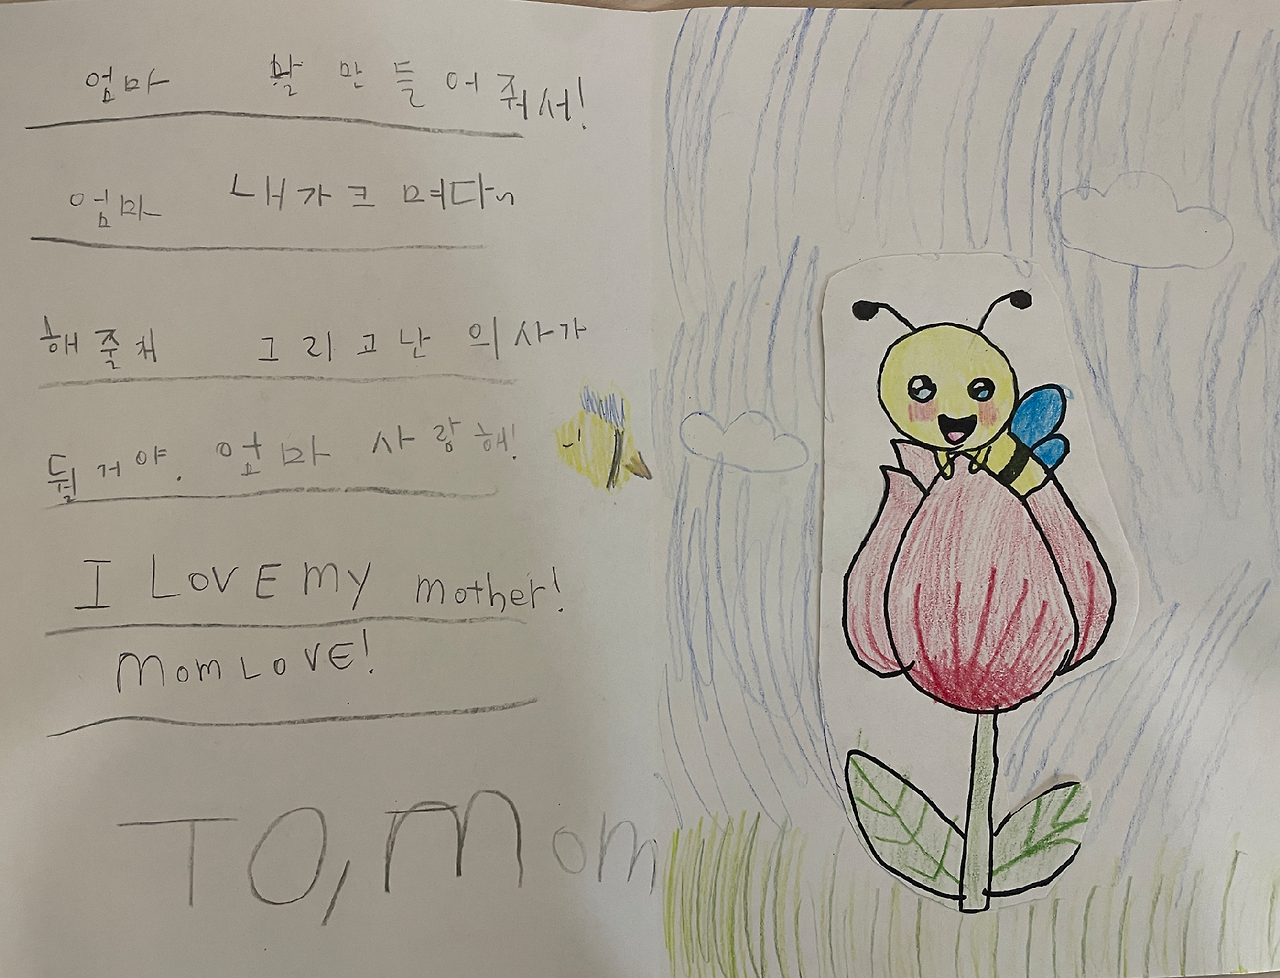 엄마 활 만들어줘서!
엄마 내가크며다~
해줄처 그리고난 의사가
될거야. 엄마 사랑해!
I LOVE MY mother!
Mom LOVE!
TO, Mom